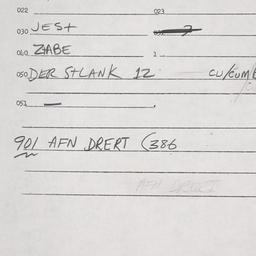 022 023
030 JEST
040 ZIABE
050 DER STLANK 12 CU/CUMB
051 —
901 AFN DRERT (386